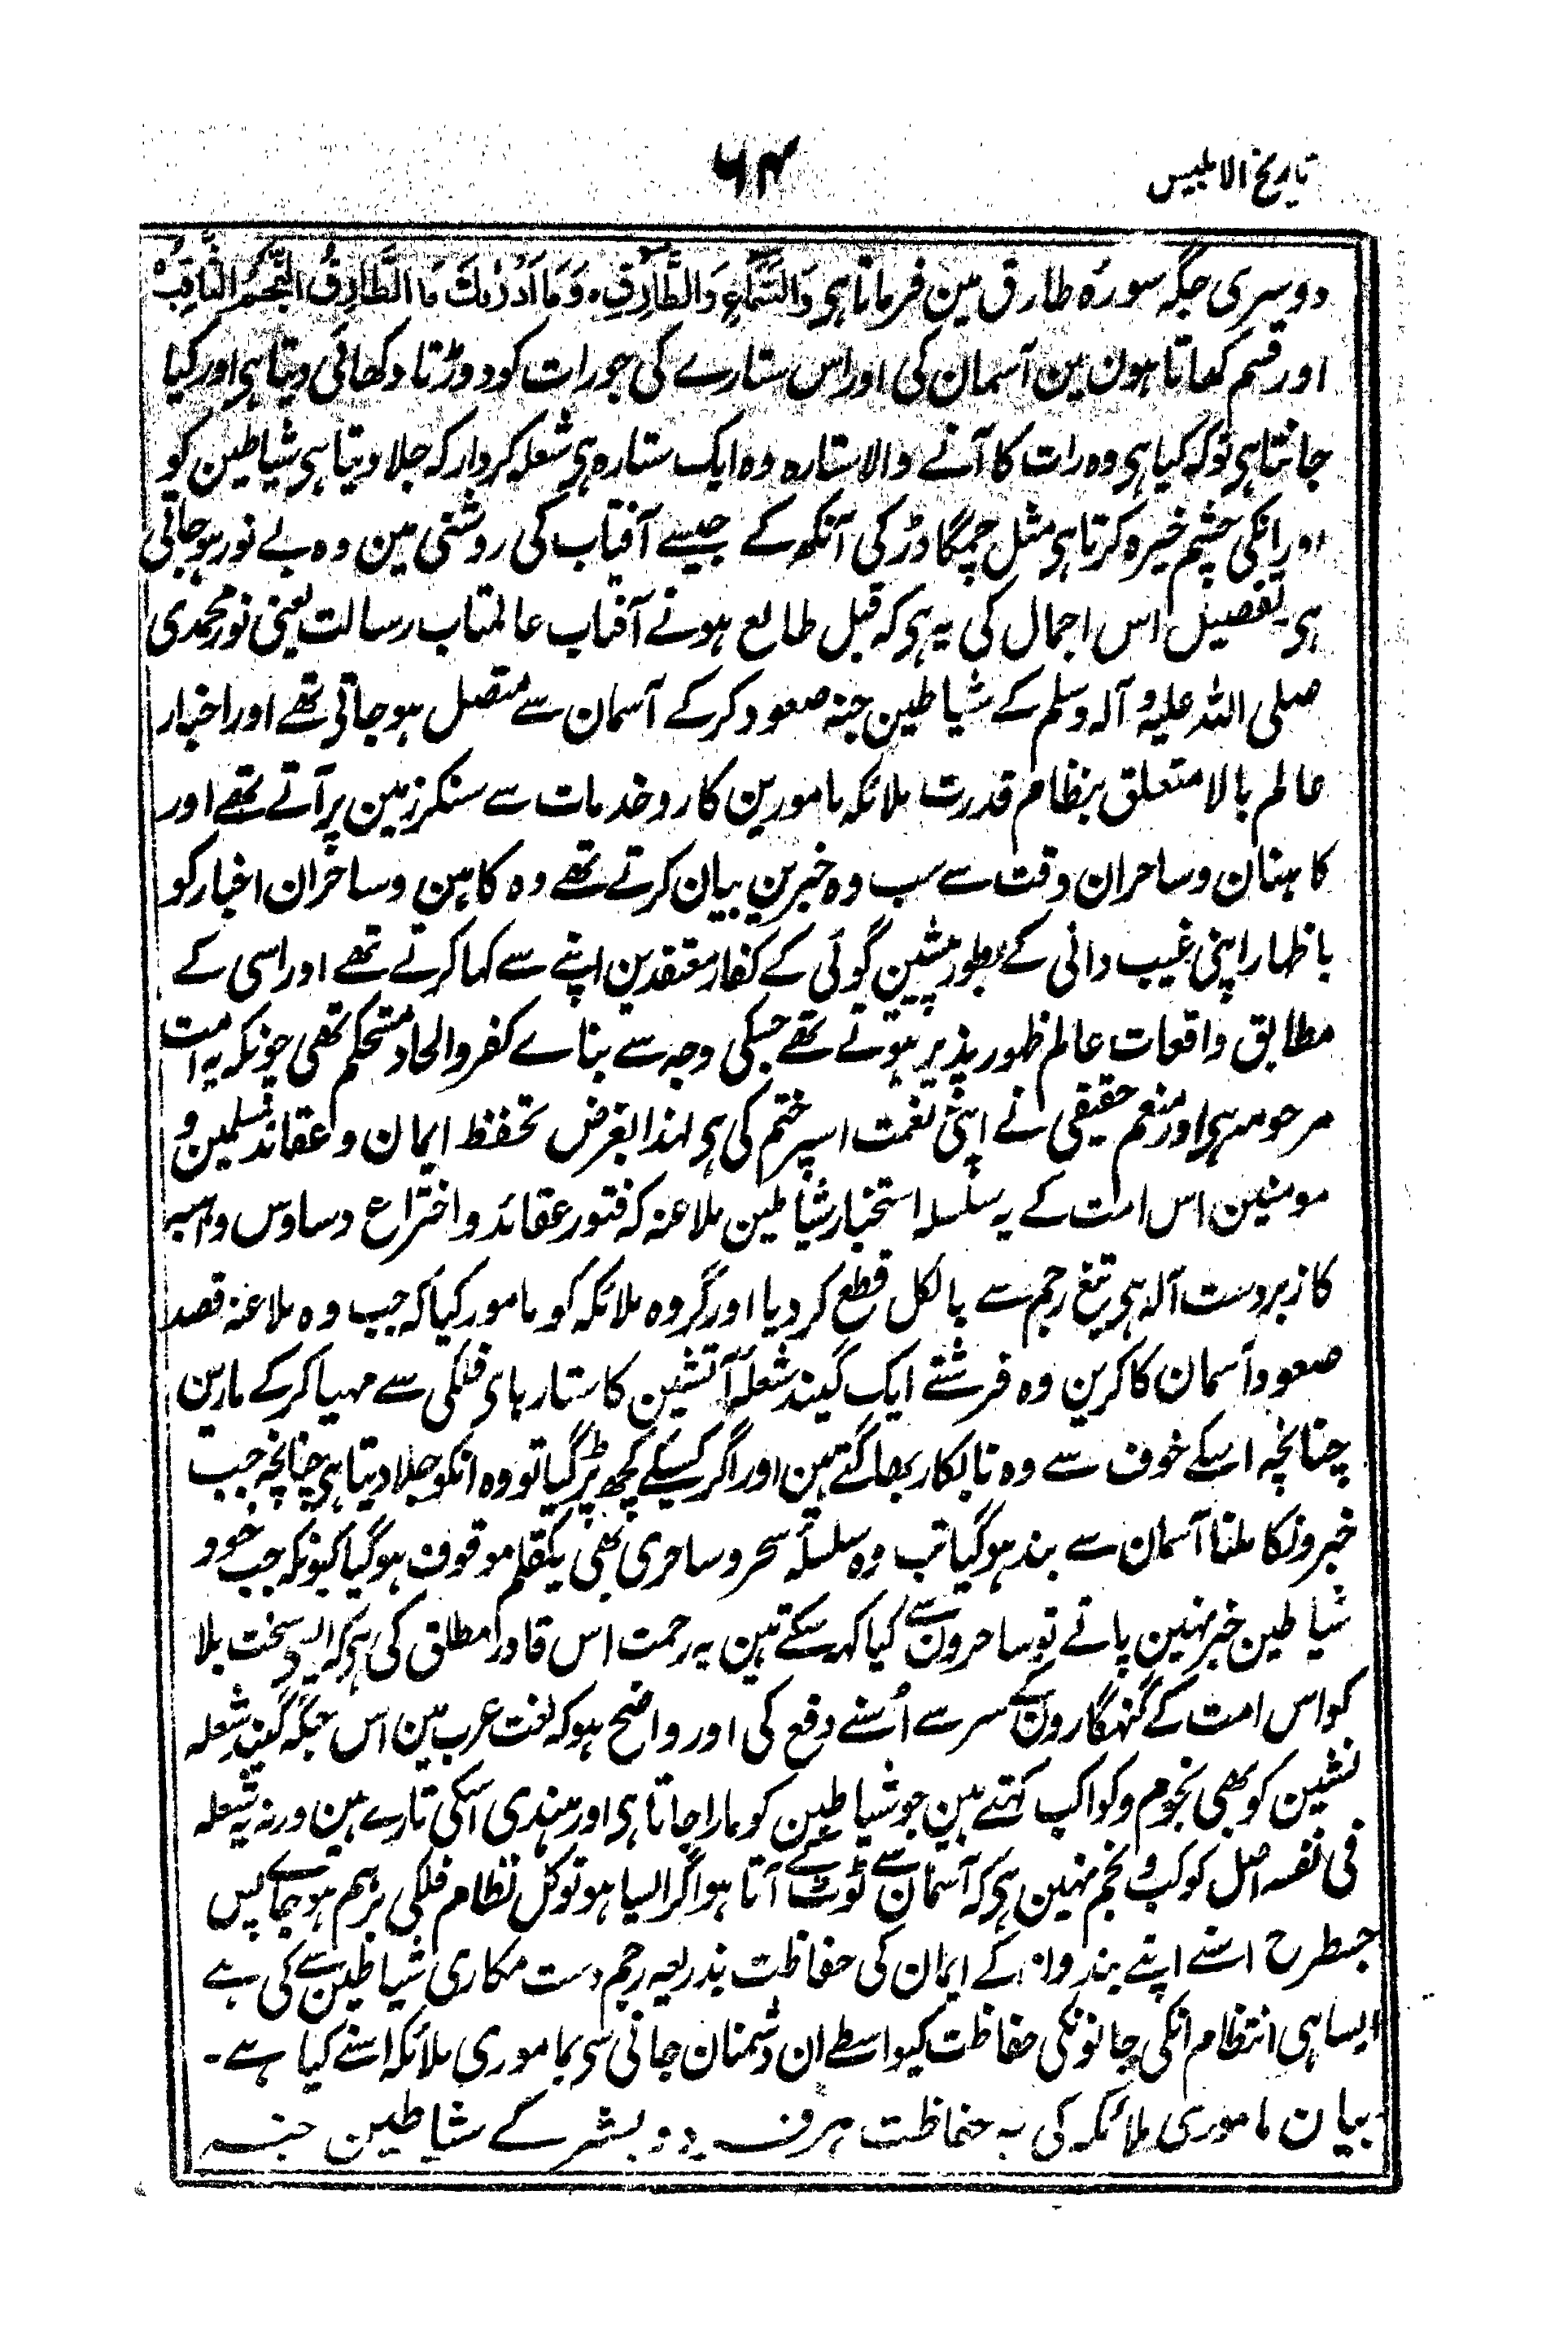 تاریخ الابلیس
۶۴
دوسری جگہ سورہ طارق مین فرماتا ہی وَالسَّمَاءِ وَالطَّارِقِ۔ وَمَا اَدْرٰىكَ مَا الطَّارِقُ النَّجْمُ الثَّاقِبُ
اور قسم کھاتا ہون مین آسمان کی اور اس ستارے کی جو رات کو دوڑتا دکھائی دیتا ہی اور کیا
جانتا ہی تو کہ کیا ہی وہ رات کا آنے والا ستارہ وہ ایک ستارہ ہی شعلہ کردار کہ جلا دیتا ہی شیاطین کو
اور انکی چشم خیرہ کرتا ہی مثل چمگادڑ کی آنکھ کے جیسے آفتاب کی روشنی مین وہ بے نور ہو جاتی
ہی تفصیل اس اجمال کی یہ ہی کہ قبل طالع ہونے آفتاب عالمتاب رسالت یعنی نور محمدی
صلی اللہ علیہ و آلہ وسلم کے شیاطین جنہ صعود کر کے آسمان سے متصل ہو جاتی تھے اور اخبار
عالم بالا متعلق بنظام قدرت ملائکہ مامورین کار و خدمات سے سنکر زمین پر آتے تھے اور
کاہنان و ساحران وقت سے سب وہ خبرین بیان کرتے تھے وہ کاہن و ساحران اخبار کو
باظہار اپنی غیب دانی کے بطور پیشین گوئی کے کفار معتقدین اپنے سے کہا کرتے تھے اور اسی کے
مطابق واقعات عالم ظہور پذیر ہوتے تھے جسکی وجہ سے بناے کفر و الحاد مستحکم تھی چونکہ یہ امت
مرحومہ ہی اور منعم حقیقی نے اپنی نعمت اسپر ختم کی ہی لہذا بغرض تحفظ ایمان و عقائد مسلمین و
مومنین اس امت کے یہ سلسلہ استخبار شیاطین ملاعنہ کہ فتور عقائد و اختراع وساوس واہیہ
کا زبردست آلہ ہی تیغ رجم سے بالکل قطع کر دیا اور گروہ ملائکہ کو مامور کیا کہ جب وہ ملاعنہ قصد
صعود آسمان کا کرین وہ فرشتے ایک گیند شعلہ آتشین کا ستار ہای فلکی سے مہیا کر کے مارین
چنانچہ اسکے خوف سے وہ نابکار بھاگتے ہین اور اگر کسیکے کچھ پڑ گیا تو وہ انکو جلا دیتا ہی چنانچہ جب
خبرونکا ملنا آسمان سے بند ہو گیا تب وہ سلسلہ سحر و ساحری بھی یکقلم موقوف ہو گیا کیونکہ جب خود
شیاطین خبر نہین پاتے تو ساحرون سے کیا کہہ سکتے ہین یہ رحمت اس قادر مطلق کی ہی کہ ایسی سخت بلا
کو اس امت کے گنہگارون کے سر سے اُسنے دفع کی اور واضح ہو کہ لغت عرب مین اس جگہ گیند شعلہ
نشین کو بھی نجوم و کواکب کہتے ہین جو شیاطین کو مارا جاتا ہی اور ہندی اسکی تارے ہین ورنہ یہ شعلہ
فی نفسہ اصل کوکب و نجم نہین ہی کہ آسمان سے ٹوٹ کے آتا ہو اگر ایسا ہو تو کل نظام فلکی برہم ہو جاے پس
جسطرح اسنے اپنے بندون کے ایمان کی حفاظت بذریعہ رجم دست مکاری شیاطین سے کی ہے
ایسا ہی انتظام انکی جانونکی حفاظت کیواسطے ان دشمنان جانی سی بماموری ملائکہ اسنے کیا ہے۔
بیان ماموری ملائکہ کی بہ حفاظت ہر فرد بشر کے شیاطین جنہ